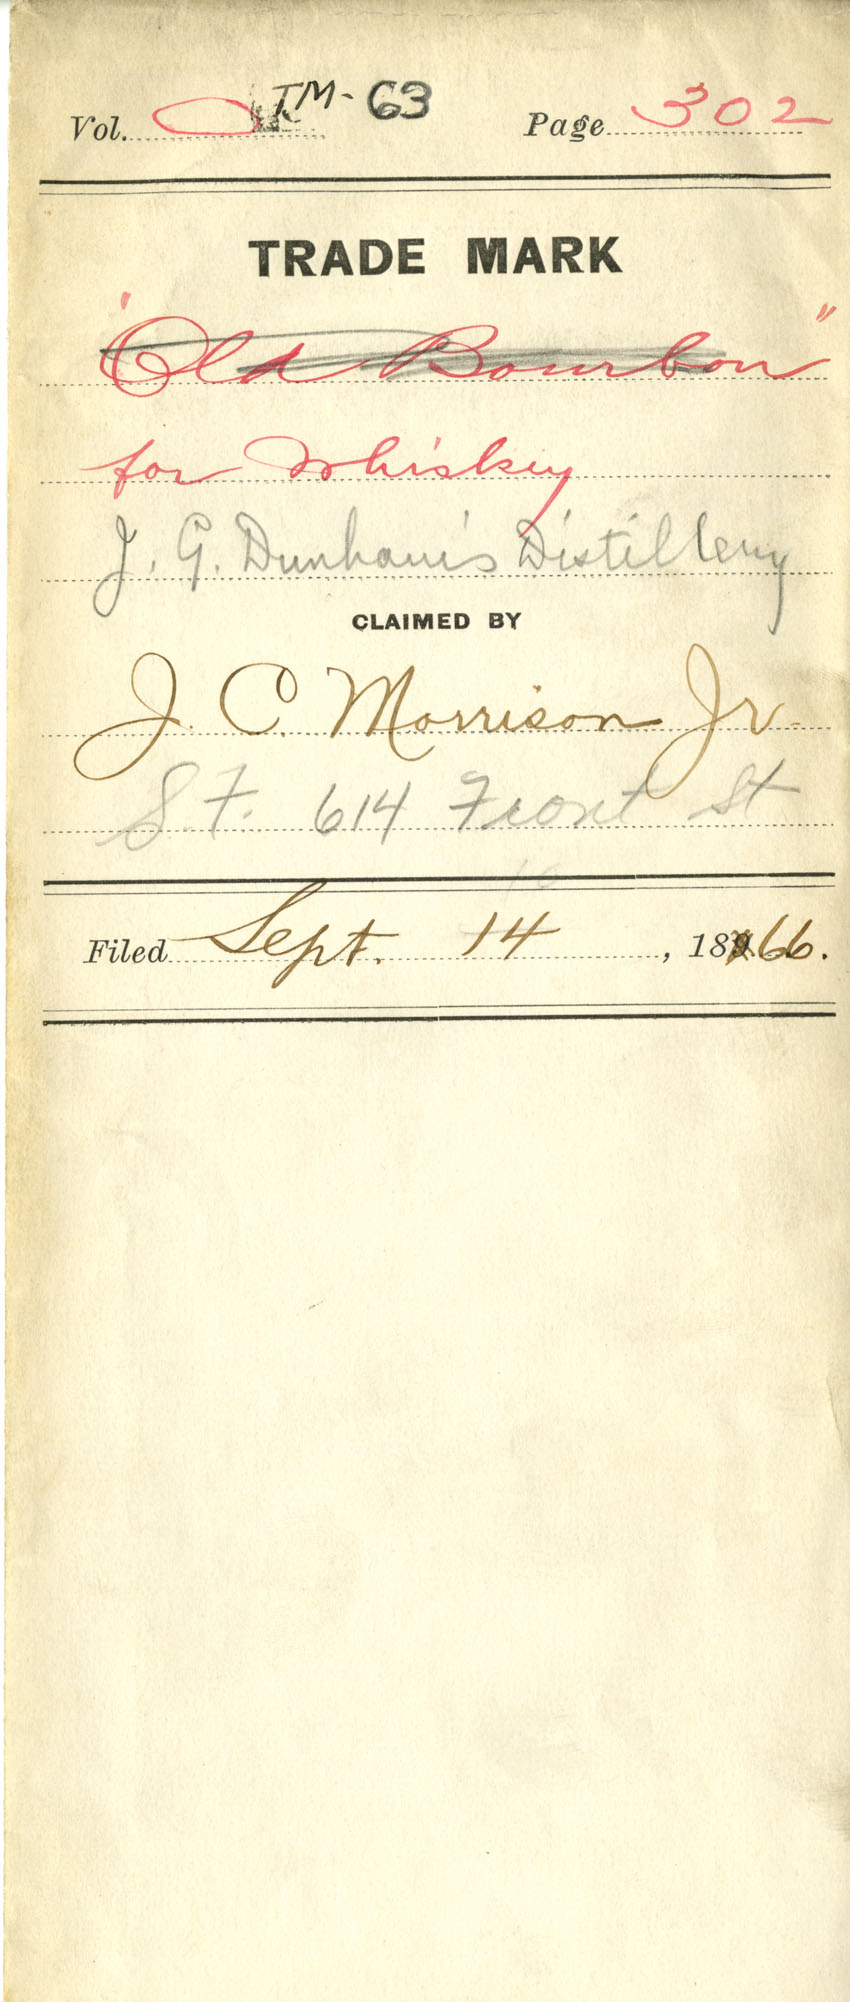 Vol. 0 TM- 63 Page 302
TRADE MARK
"Old Bourbon"
for Whiskey
J. G. Dunham's Distillery
CLAIMED BY
J. C. Morrison Jr.
S F. 614 Front St
Filed Sept. 14, 1866.